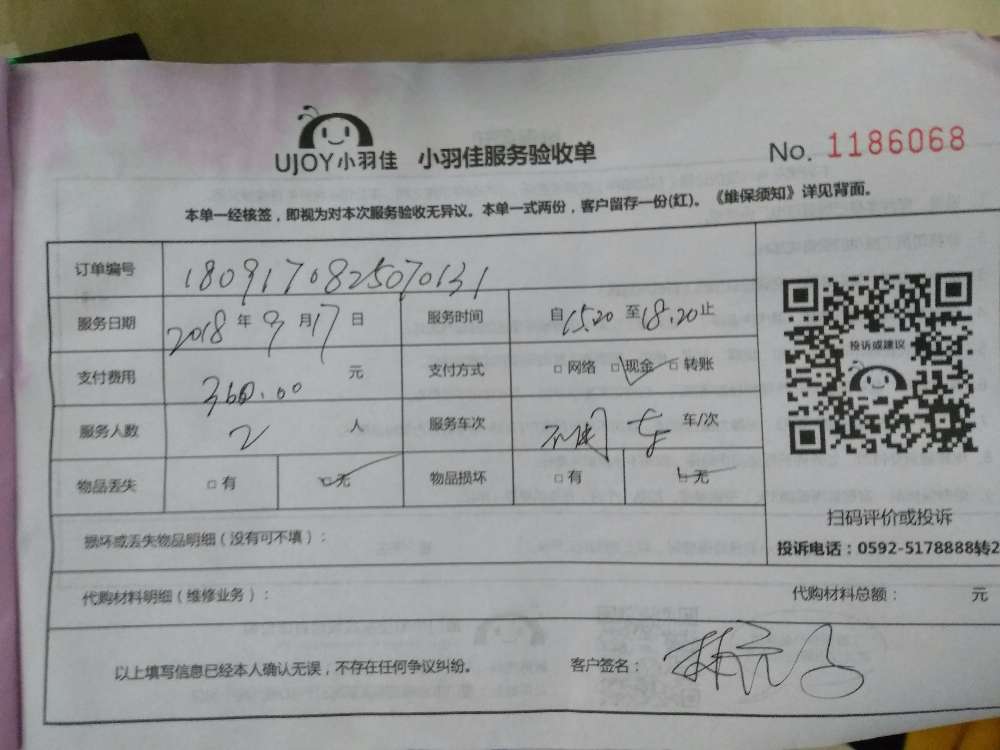 UJOY小羽佳 小羽佳服务验收单 No. 1186068
本单一经核签，即视为对本次服务验收无异议。本单一式两份，客户留存一份(红)。《维保须知》详见背面。
订单编号 1809170825070131
服务日期 2018 年 9 月 17 日 服务时间 自 15.20 至 18.20 止
支付费用 360.00 元 支付方式 □ 网络 ☑ 现金 □ 转账
服务人数 2 人 服务车次 不用车 车/次
物品丢失 □ 有 ☑ 无 物品损坏 □ 有 ☑ 无
投诉或建议
扫码评价或投诉
投诉电话：0592-5178888转2
损坏或丢失物品明细（没有可不填）：
代购材料明细（维修业务）： 代购材料总额： 元
以上填写信息已经本人确认无误，不存在任何争议纠纷。 客户签名：